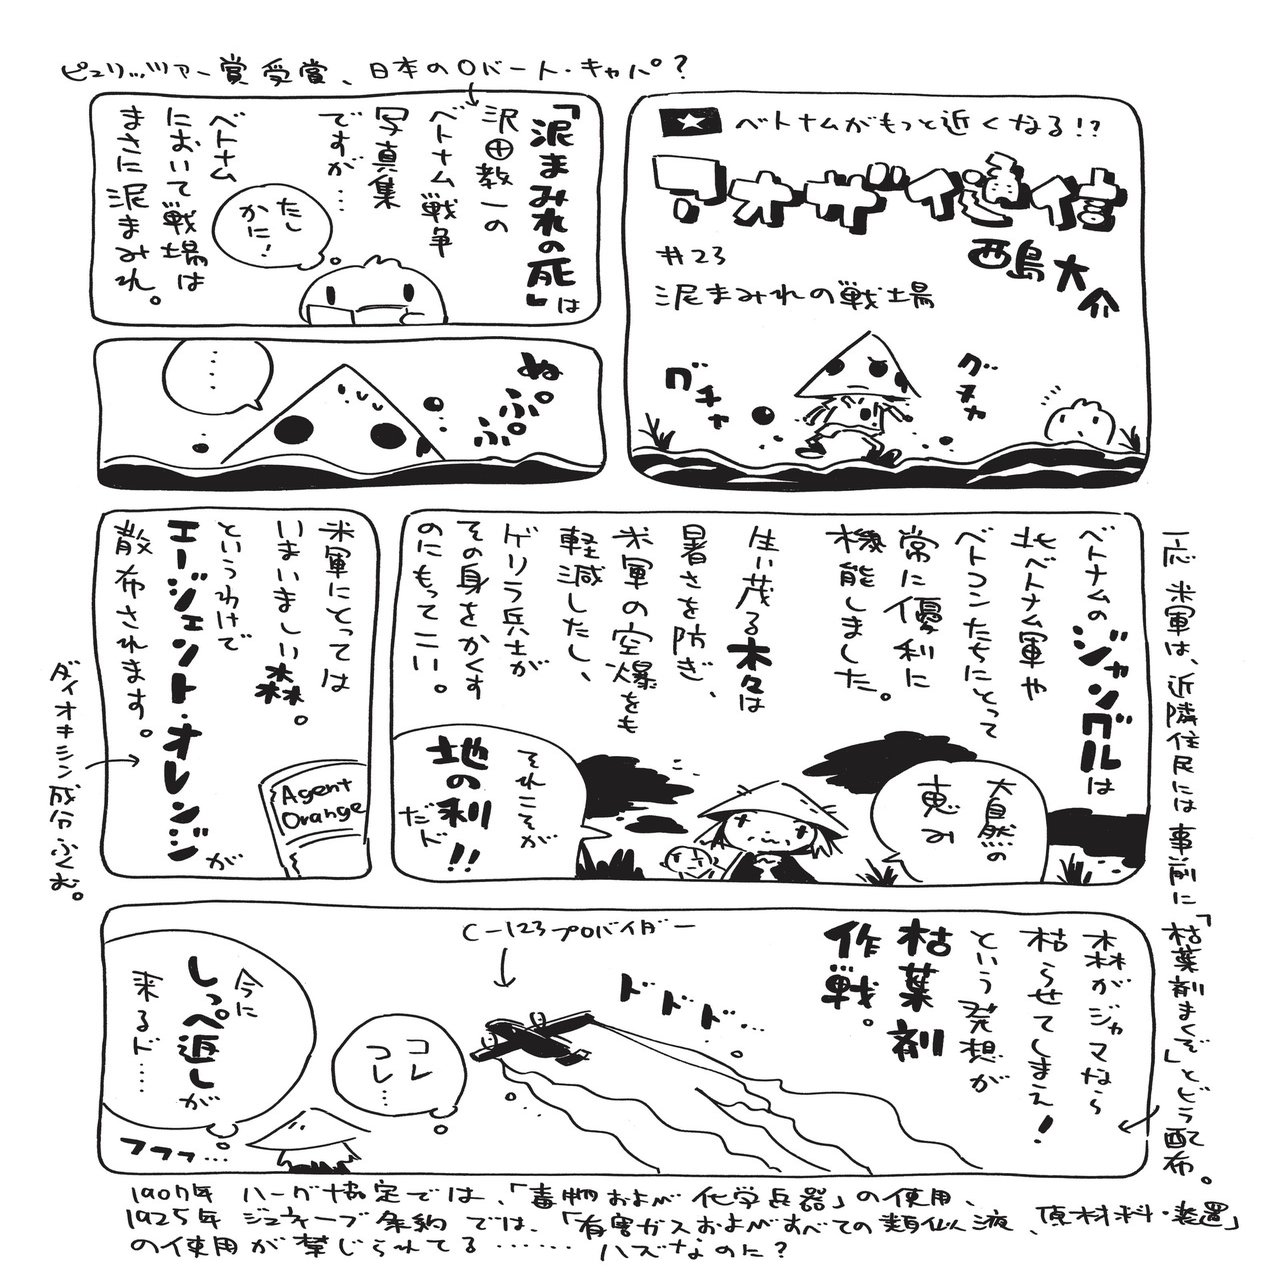 ベトナムがもっと近くなる!?
アオザイ通信
西島大介
#23
泥まみれの戦場
グチャ
グチャ
ピュリッツァー賞受賞、日本のロバート・キャパ?
「泥まみれの死」は
沢田教一の
ベトナム戦争
写真集
ですが…
ベトナム
において戦場は
まさに泥まみれ。
たし
かに!
ぬぷぷぷ
……
ベトナムのジャングルは
北ベトナム軍や
ベトコンたちにとって
常に優利に
機能しました。
生い茂る木々は
暑さを防ぎ、
米軍の空爆をも
軽減したし、
ゲリラ兵士が
その身をかくす
のにもってこい。
大自然の
恵み
それこそが
地の利!!
だド
米軍にとっては
いまいましい森。
というわけで
エージェント・オレンジが
散布されます。
Agent
Orange
ダイオキシン成分ふくむ。
一応 米軍は、近隣住民には 事前に「枯葉剤まくぞ」とビラ配布。
森がジャマなら
枯らせてしまえ!
という発想が
枯葉剤
作戦。
ドドド…
C-123プロバイダー
コレ
コレ…
今に
しっぺ返しが
来るド……
フフフ…
1907年 ハーグ協定では、「毒物および 化学兵器」の使用、
1925年 ジュネーブ条約 では、「有害ガスおよびすべての類似液、原材料・装置」
の使用が禁じられてる…… ハズなのに?